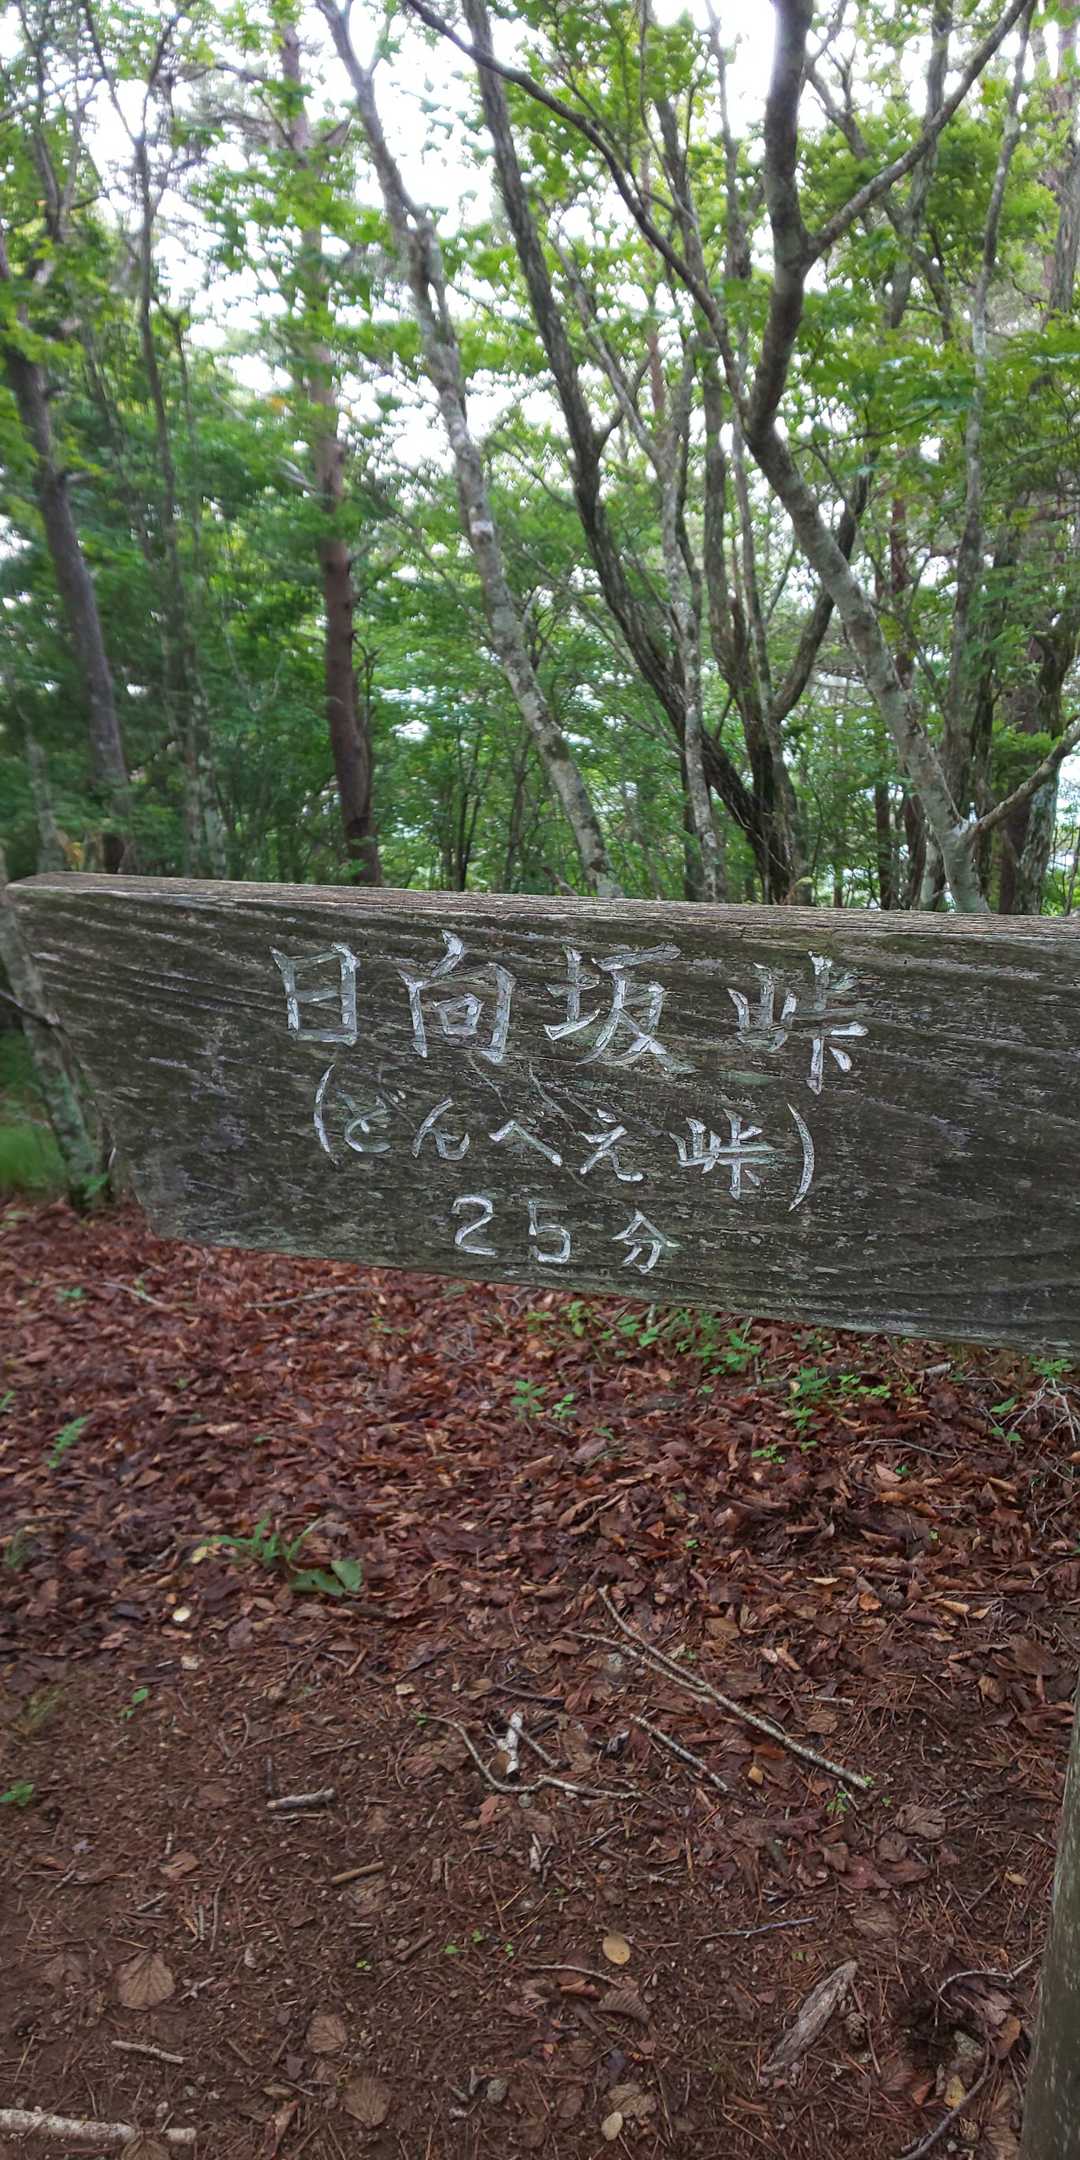 日向坂峠
(どんべえ峠)
25分